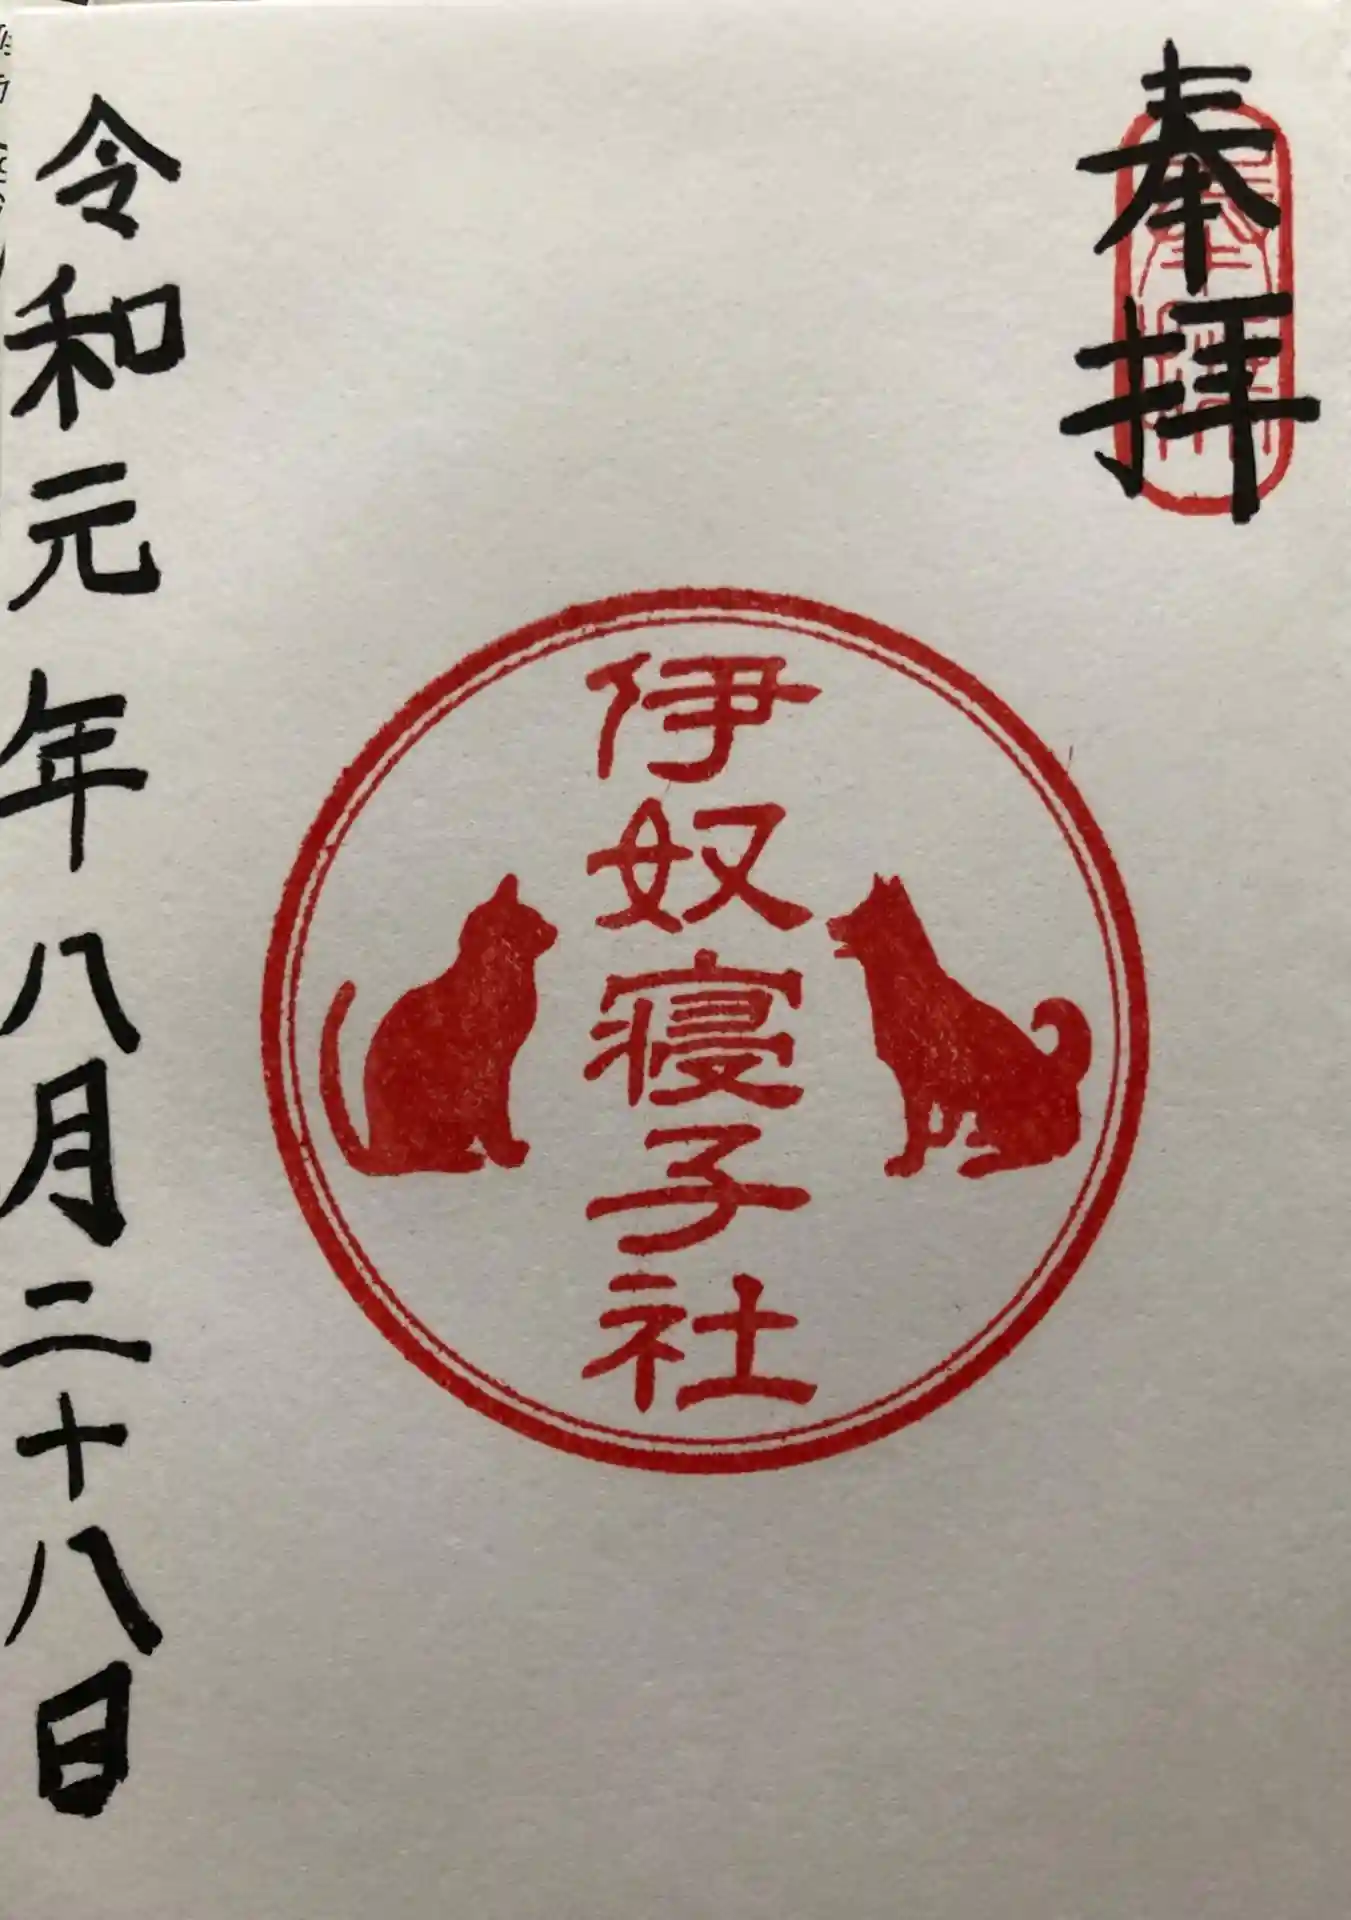 奉拝
奉拝
伊奴寝子社
令和元年八月二十八日